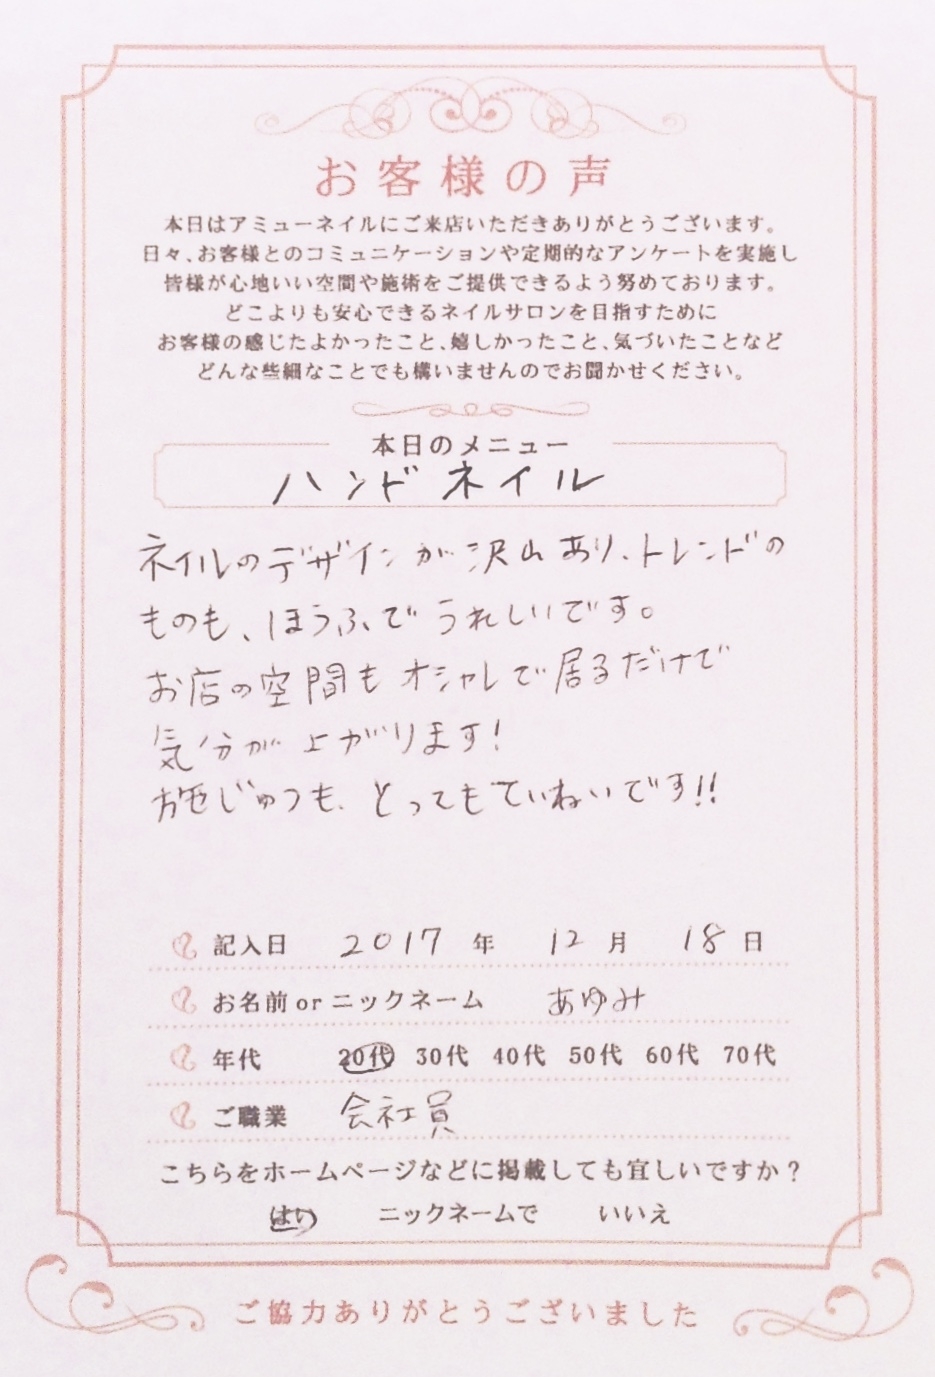 お客様の声
本日はアミューネイルにご来店いただきありがとうございます。
日々、お客様とのコミュニケーションや定期的なアンケートを実施し
皆様が心地いい空間や施術をご提供できるよう努めております。
どこよりも安心できるネイルサロンを目指すために
お客様の感じたよかったこと、嬉しかったこと、気づいたことなど
どんな些細なことでも構いませんのでお聞かせください。
本日のメニュー
ハンドネイル
ネイルのデザインが沢山あり、トレンドの
ものも、ほうふでうれしいです。
お店の空間もオシャレで居るだけで
気分が上がります!
お色じゅつも、とってもていねいです!!
記入日 2017 年 12 月 18 日
お名前 or ニックネーム あゆみ
年代 20代 30代 40代 50代 60代 70代
ご職業 会社員
こちらをホームページなどに掲載しても宜しいですか?
はい ニックネームで いいえ
ご協力ありがとうございました